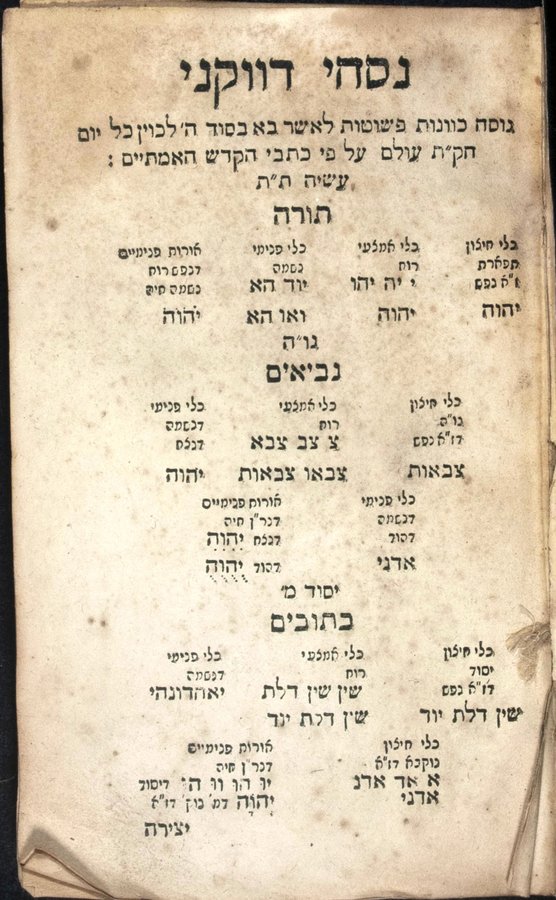 נסחי דווקני
נוסח כוונות פשוטות לאשר בא בסוד ה׳ לכוין כל יום
חק״ת עולם על פי כתבי הקדש האמתיים :
עשיה ת״ת
תורה
כלי חיצון כלי אמצעי כלי פנימי אורות פנימיים
תפארת רוח נשמה דנפש רוח
ז״א נפש י יה יהו יוד הא נשמה חיה
יהוה יהוה ואו הא יהוה
נו״ה
נביאים
כלי חיצון כלי אמצעי כלי פנימי
נו״ה רוח דנשמה
דז״א נפש צ צב צבא דנצח
צבאות צבאו צבאות יהוה
כלי פנימי אורות פנימיים
דנשמה דנר״ן חיה
דהוד דנצח יהוה
אדני דהוד יהוה
יסוד מ׳
כתובים
כלי חיצון כלי אמצעי כלי פנימי
יסוד רוח דנשמה
דז״א נפש שין שין דלת יאהדונהי
שין דלת יוד שין דלת יוד
כלי חיצון אורות פנימיים
נוקבא דז״א דנר״ן חיה
א אד אדנ יו הו וו הו דיסוד
אדני יהוה דמ׳ נוק׳ דז״א
יצירה